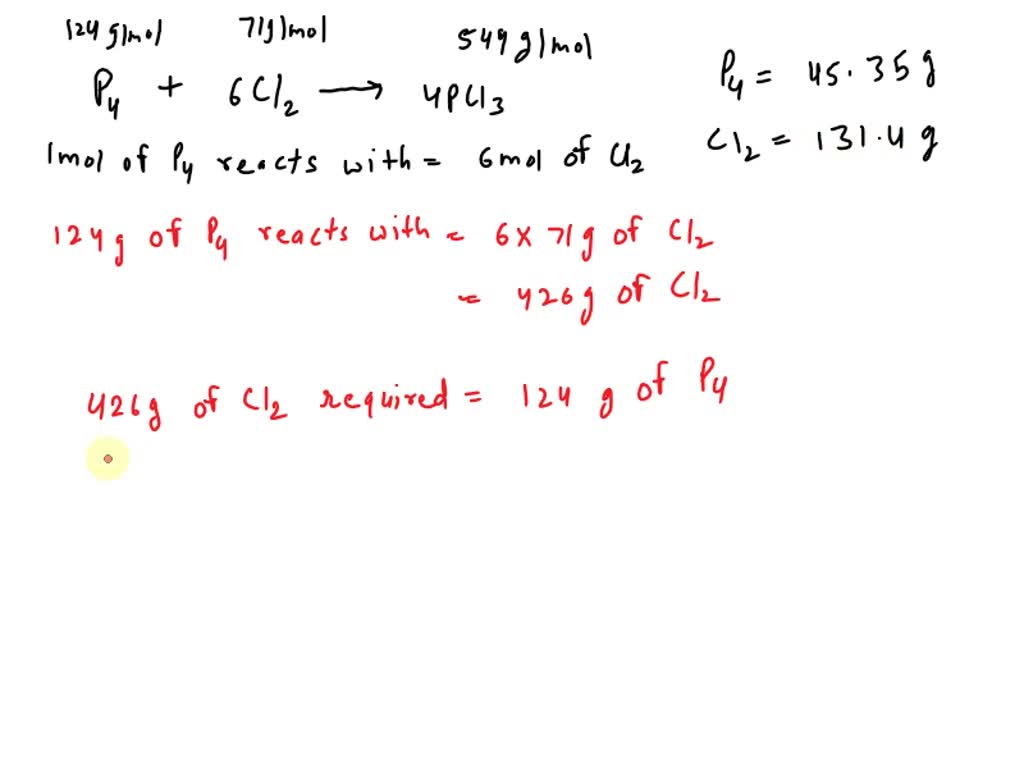 124 g/mol 71g/mol 549 g/mol
P4 + 6Cl2 → 4PCl3
P4 = 45.35 g
Cl2 = 131.4 g
1mol of P4 reacts with = 6mol of Cl2
124g of P4 reacts with = 6 x 71g of Cl2
= 426g of Cl2
426g of Cl2 required = 124 g of P4